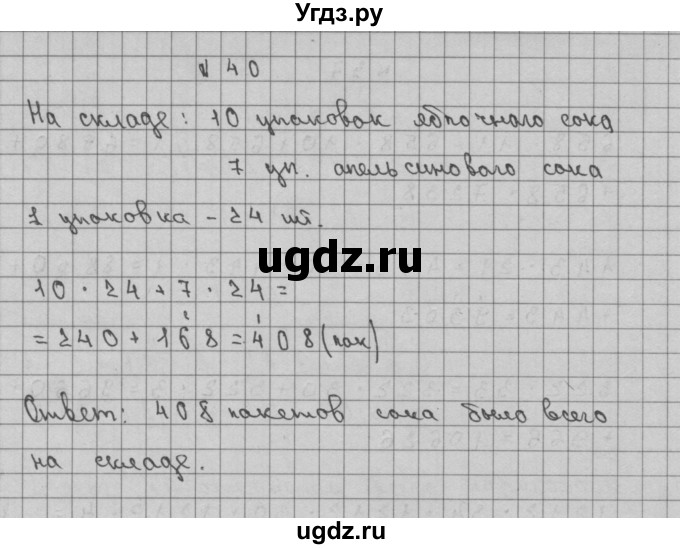 Угдз.ру
№ 40
На складе: 10 упаковок яблочного сока
7 уп. апельсинового сока
1 упаковка – 24 шт.
ugdz.ru
10 · 24 + 7 · 24 =
= 240 + 168 = 408 (пак)
Ответ: 408 пакетов сока было всего
на складе.
ugdz.ru